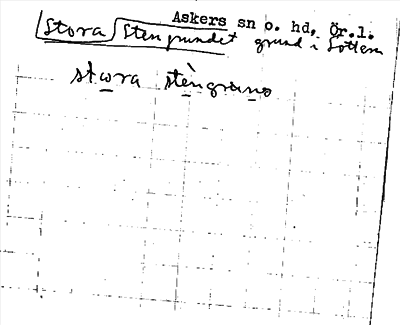 Askers sn o. hd, Ör.l.
Stora Stengrundet grund i Sottern
stωra stèngrunᴅ